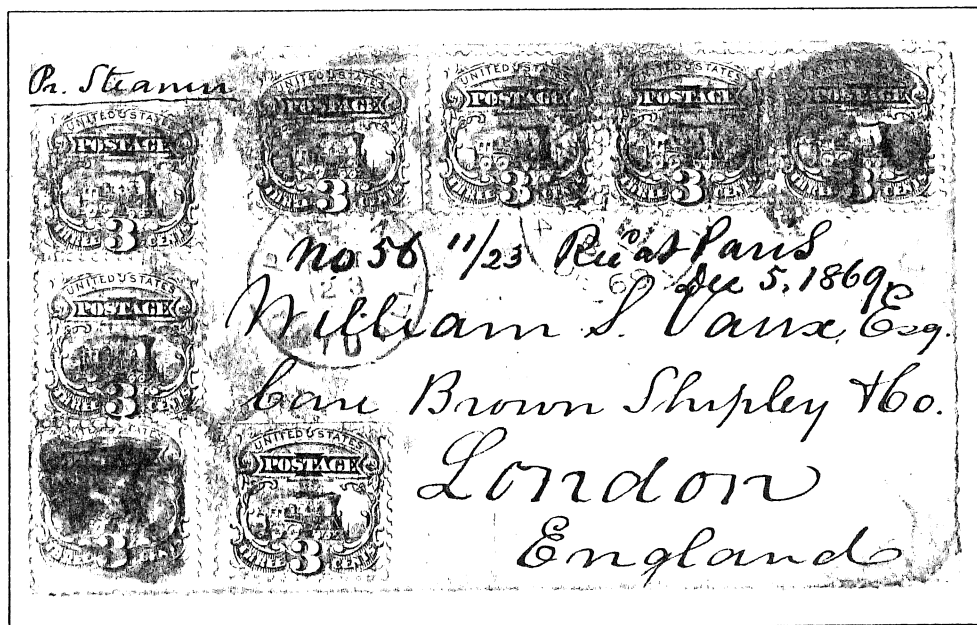 Pr. Steamer
UNITED STATES
POSTAGE
3
THREE CENTS
UNITED STATES
POSTAGE
3
THREE CENTS
UNITED STATES
POSTAGE
3
THREE CENTS
UNITED STATES
POSTAGE
3
THREE CENTS
POSTAGE
3
THREE CENTS
UNITED STATES
POSTAGE
3
THREE CENTS
3
UNITED STATES
POSTAGE
3
THREE CENTS
No 56 11/23 Rec at Paris
Dec 5. 1869.
William S. Vaux, Esq.
Care Brown Shipley & Co.
London
England